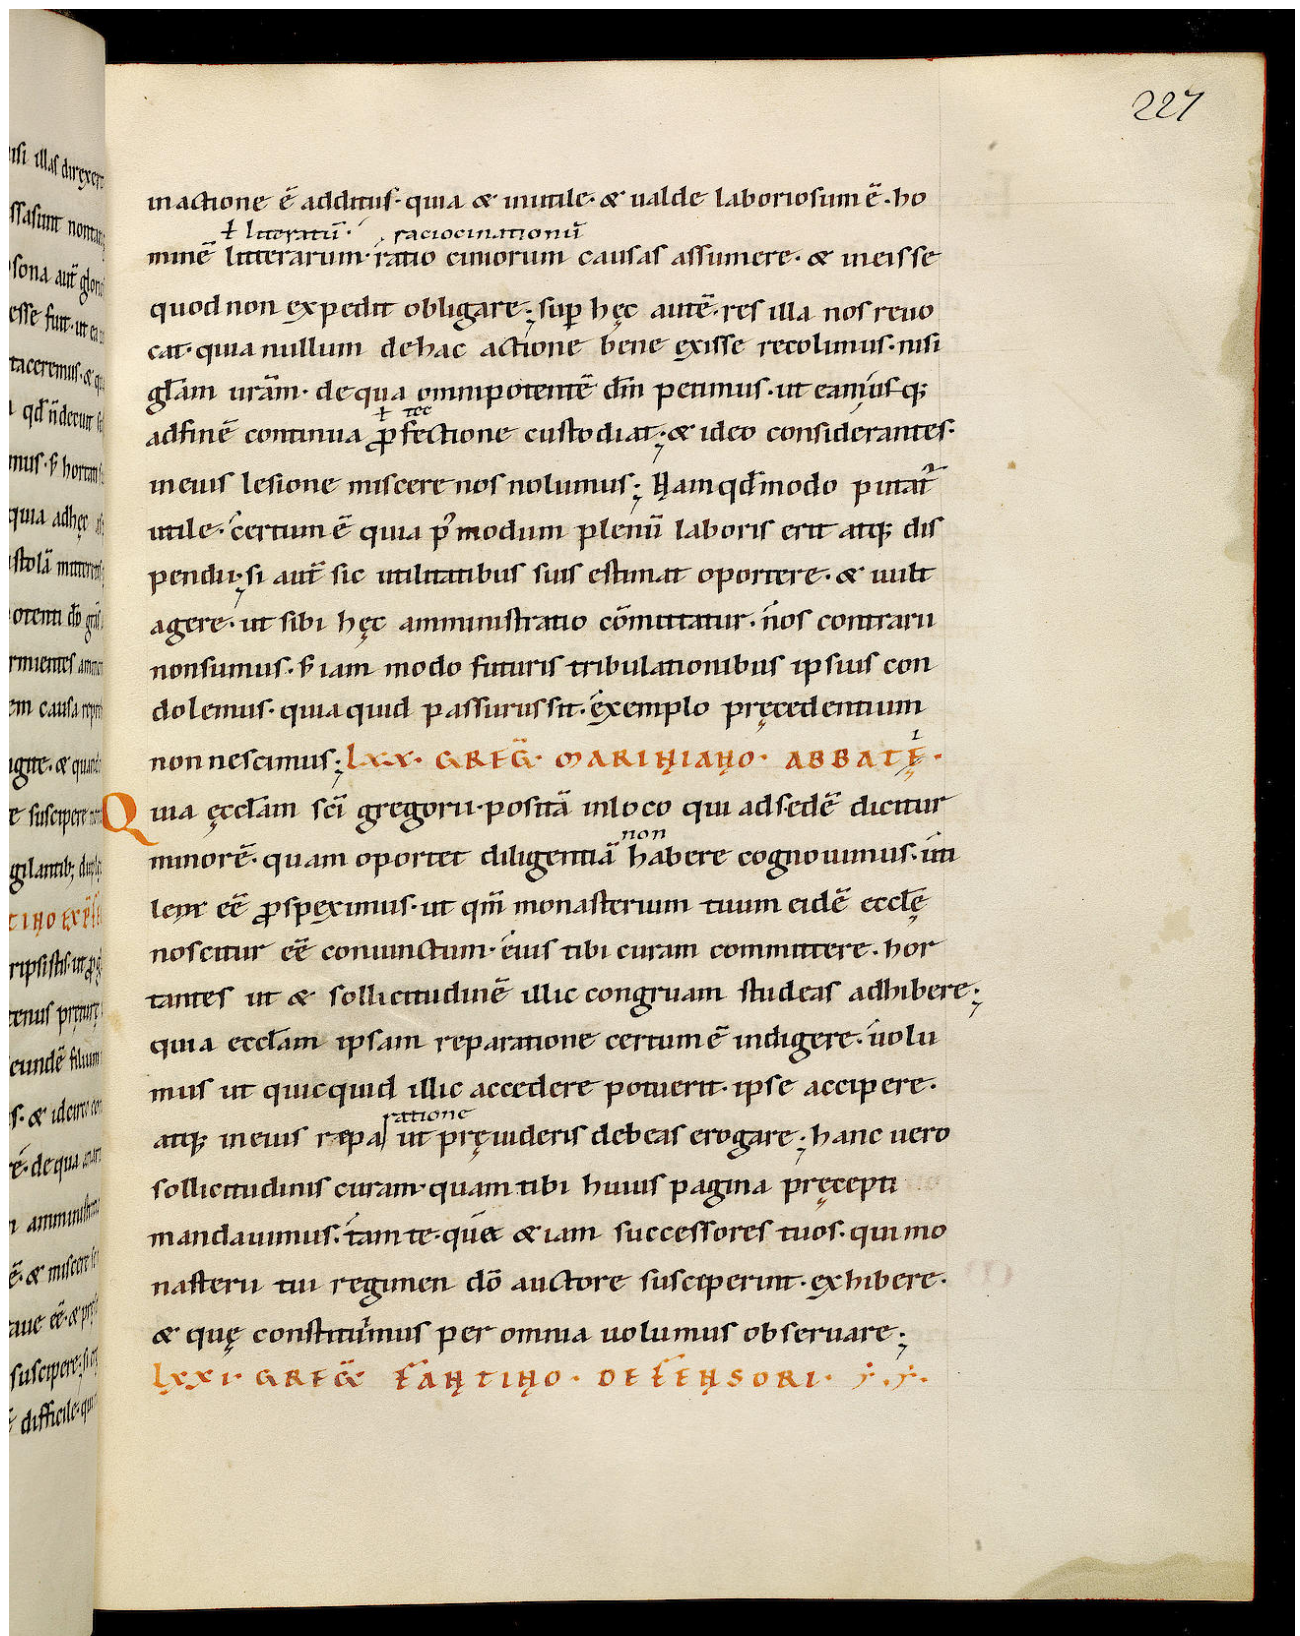 227
inactione ē additus· quia & inutile· & ualde laboriosum ē· ho
ł litteratū· raciocinationū
minē litterarum· ratio ciniorum causas assumere· & ineis se
quod non expedit obligare; suꝑ hęc autē· res illa nos reuo
cat· quia nullum dehac actione bene exisse recolimus· nisi
głam urām· dequa omnipotentē dm̄ petimus· ut eam iusq;
ł tec
adfinē continua ꝓfectione custodiat; & ideo considerantes·
ineius lesione miscere nos nolumus; Nam qđ modo putat̄
utile· certum ē quia p̄ modum plenū laboris erit atq; dis
pendii; si aut̄ sic utilitatibus suis estimat oportere· & uult
agere· ut sibi hęc amministratio cōmittatur· nos contrarii
non sumus· s̄ iam modo futuris tribulationibus ipsius con
dolemus· quia quid passurus sit· exemplo pręcedentium
non nescimus; LXX· GREḠ· MARINIANO· ABBATĘ·
i
Quia ęccłam scī gregorii· positā inloco qui adsedē dicitur
non
minorē· quam oportet diligentiā habere cognouimus· uti
leṃ eē ꝓspeximus· ut qm̄ monasterium tuum eidē eccłę
noscitur eē coniunctum· eius tibi curam committere· hor
tantes ut & sollicitudinē illic congruam studeas adhibere;
quia eccłam ipsam reparatione certum ē indigere· uolu
mus ut quicquid illic accedere potuerit· ipse accipere·
ratione
atq; ineius repa ut pręuideris debeas erogare; hanc uero
sollicitudinis curam· quam tibi huius pagina pręcepti
mandauimus· tam te· quā &iam successores tuos· qui mo
nasterii tui regimen dō auctore susceperint· exhibere·
& quę constituimus per omnia uolumus obseruare;
LXXI· GREḠ FANTINO· DEFENSORI·